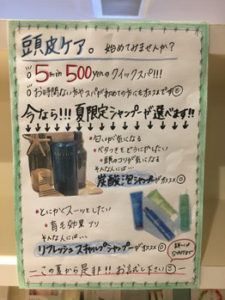 頭皮ケア。始めてみませんか？
5min 500yenのクイックスパ!!!
お時間ない方やスパが初めての方にもオススメです
今なら!!! 夏限定シャンプーが選べます!!
・匂いが気になる
・ベタつきもどうにかしたい
・頭のコリが気になる
そんな人には…
炭酸泡シャンプーがオススメ
・とにかくスーッとしたい
・育毛効果アリ
そんな人には…
リフレッシュスキャルプシャンプーがオススメ
この夏から是非!! お試し下さい